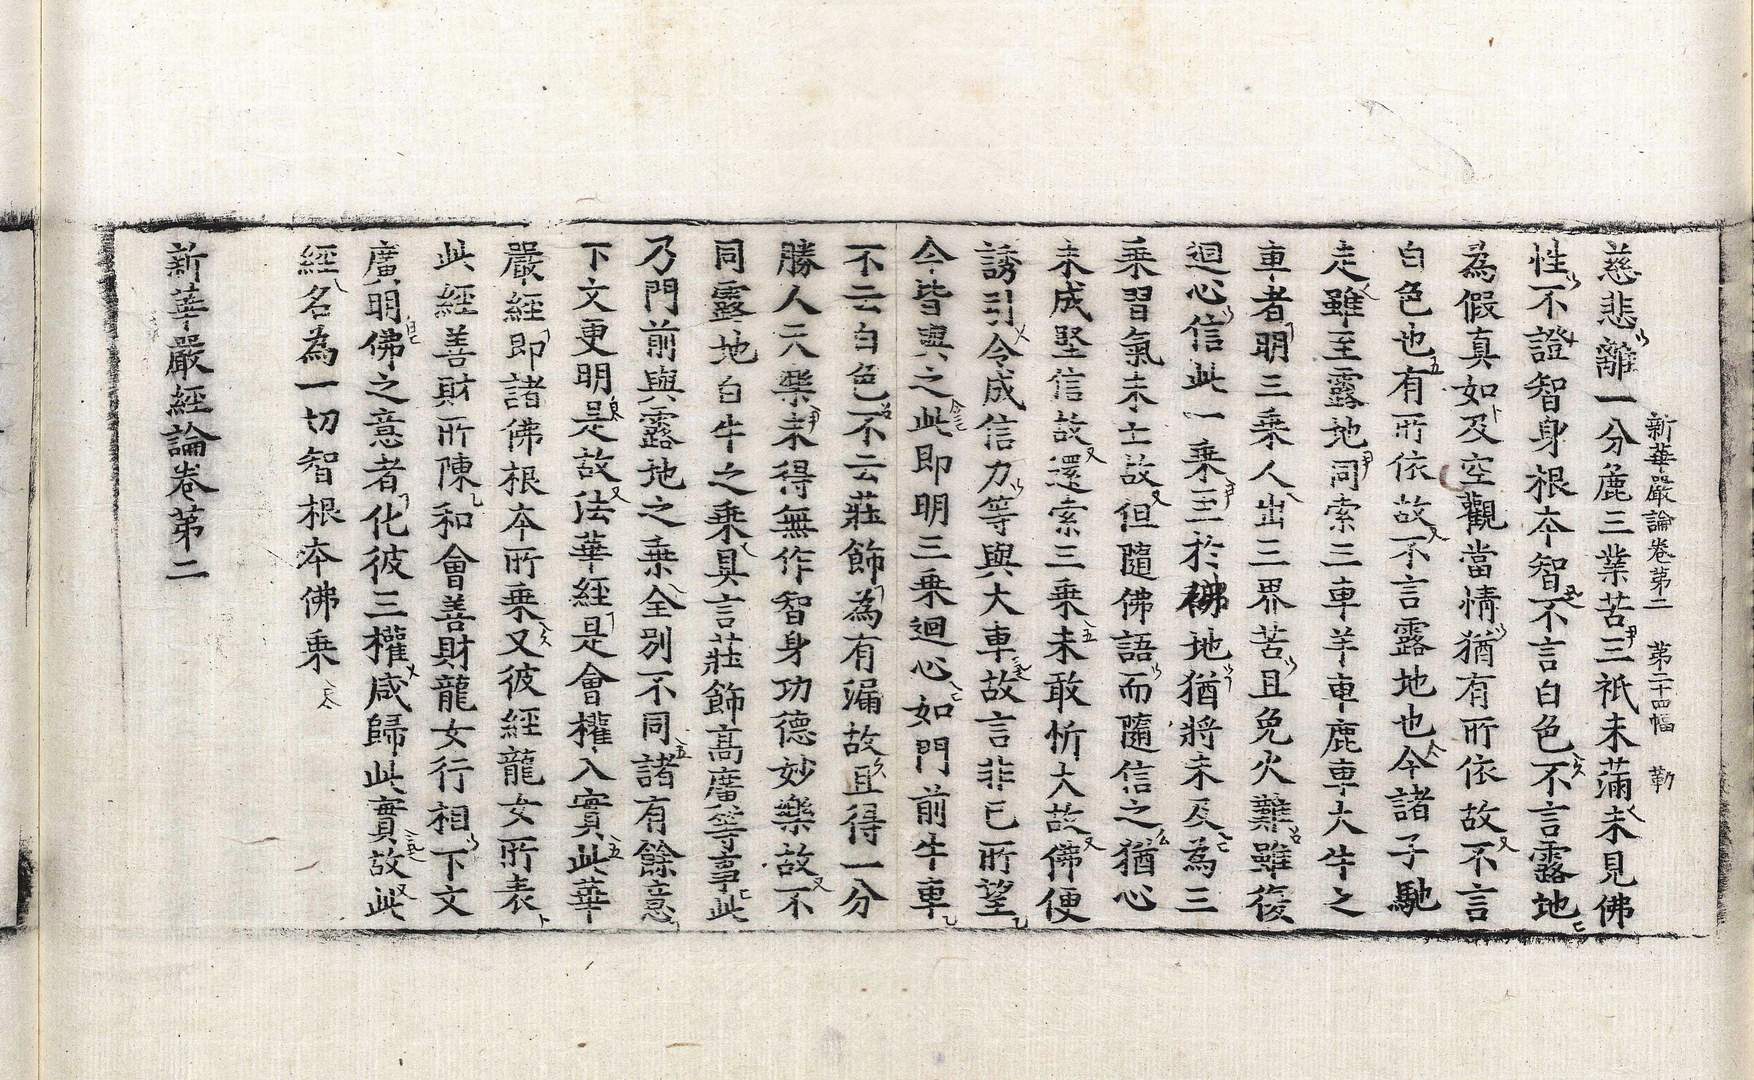 新華嚴論卷第二　第二十四幅　勒
慈悲離一分麁三業苦三祇未滿未見佛
性不證智身根本智不言白色不言露地
為假真如及空觀當情猶有所依故不言
白色也有所依故不言露地也今諸子馳
走雖至露地同索三車羊車鹿車大牛之
車者明三乘人出三界苦且免火難雖復
迴心信此一乘至於佛地猶將未及為三
乘習氣未亡故但隨佛語而隨信之猶心
未成堅信故還索三乘未敢忻大故佛便
誘引令成信力等與大車故言非己所望
今皆與之此即明三乘迴心如門前牛車
不云白色不云莊飾為有漏故且得一分
勝人天樂未得無作智身功德妙樂故不
同露地白牛之乘具言莊飾高廣等事此
乃門前與露地之乘全別不同諸有餘意
下文更明是故法華經是會權入實此華
嚴經即諸佛根本所乘又彼經龍女所表
此經善財所陳和會善財龍女行相下文
廣明佛之意者化彼三權咸歸此實故此
經名為一切智根本佛乘
新華嚴經論卷第二